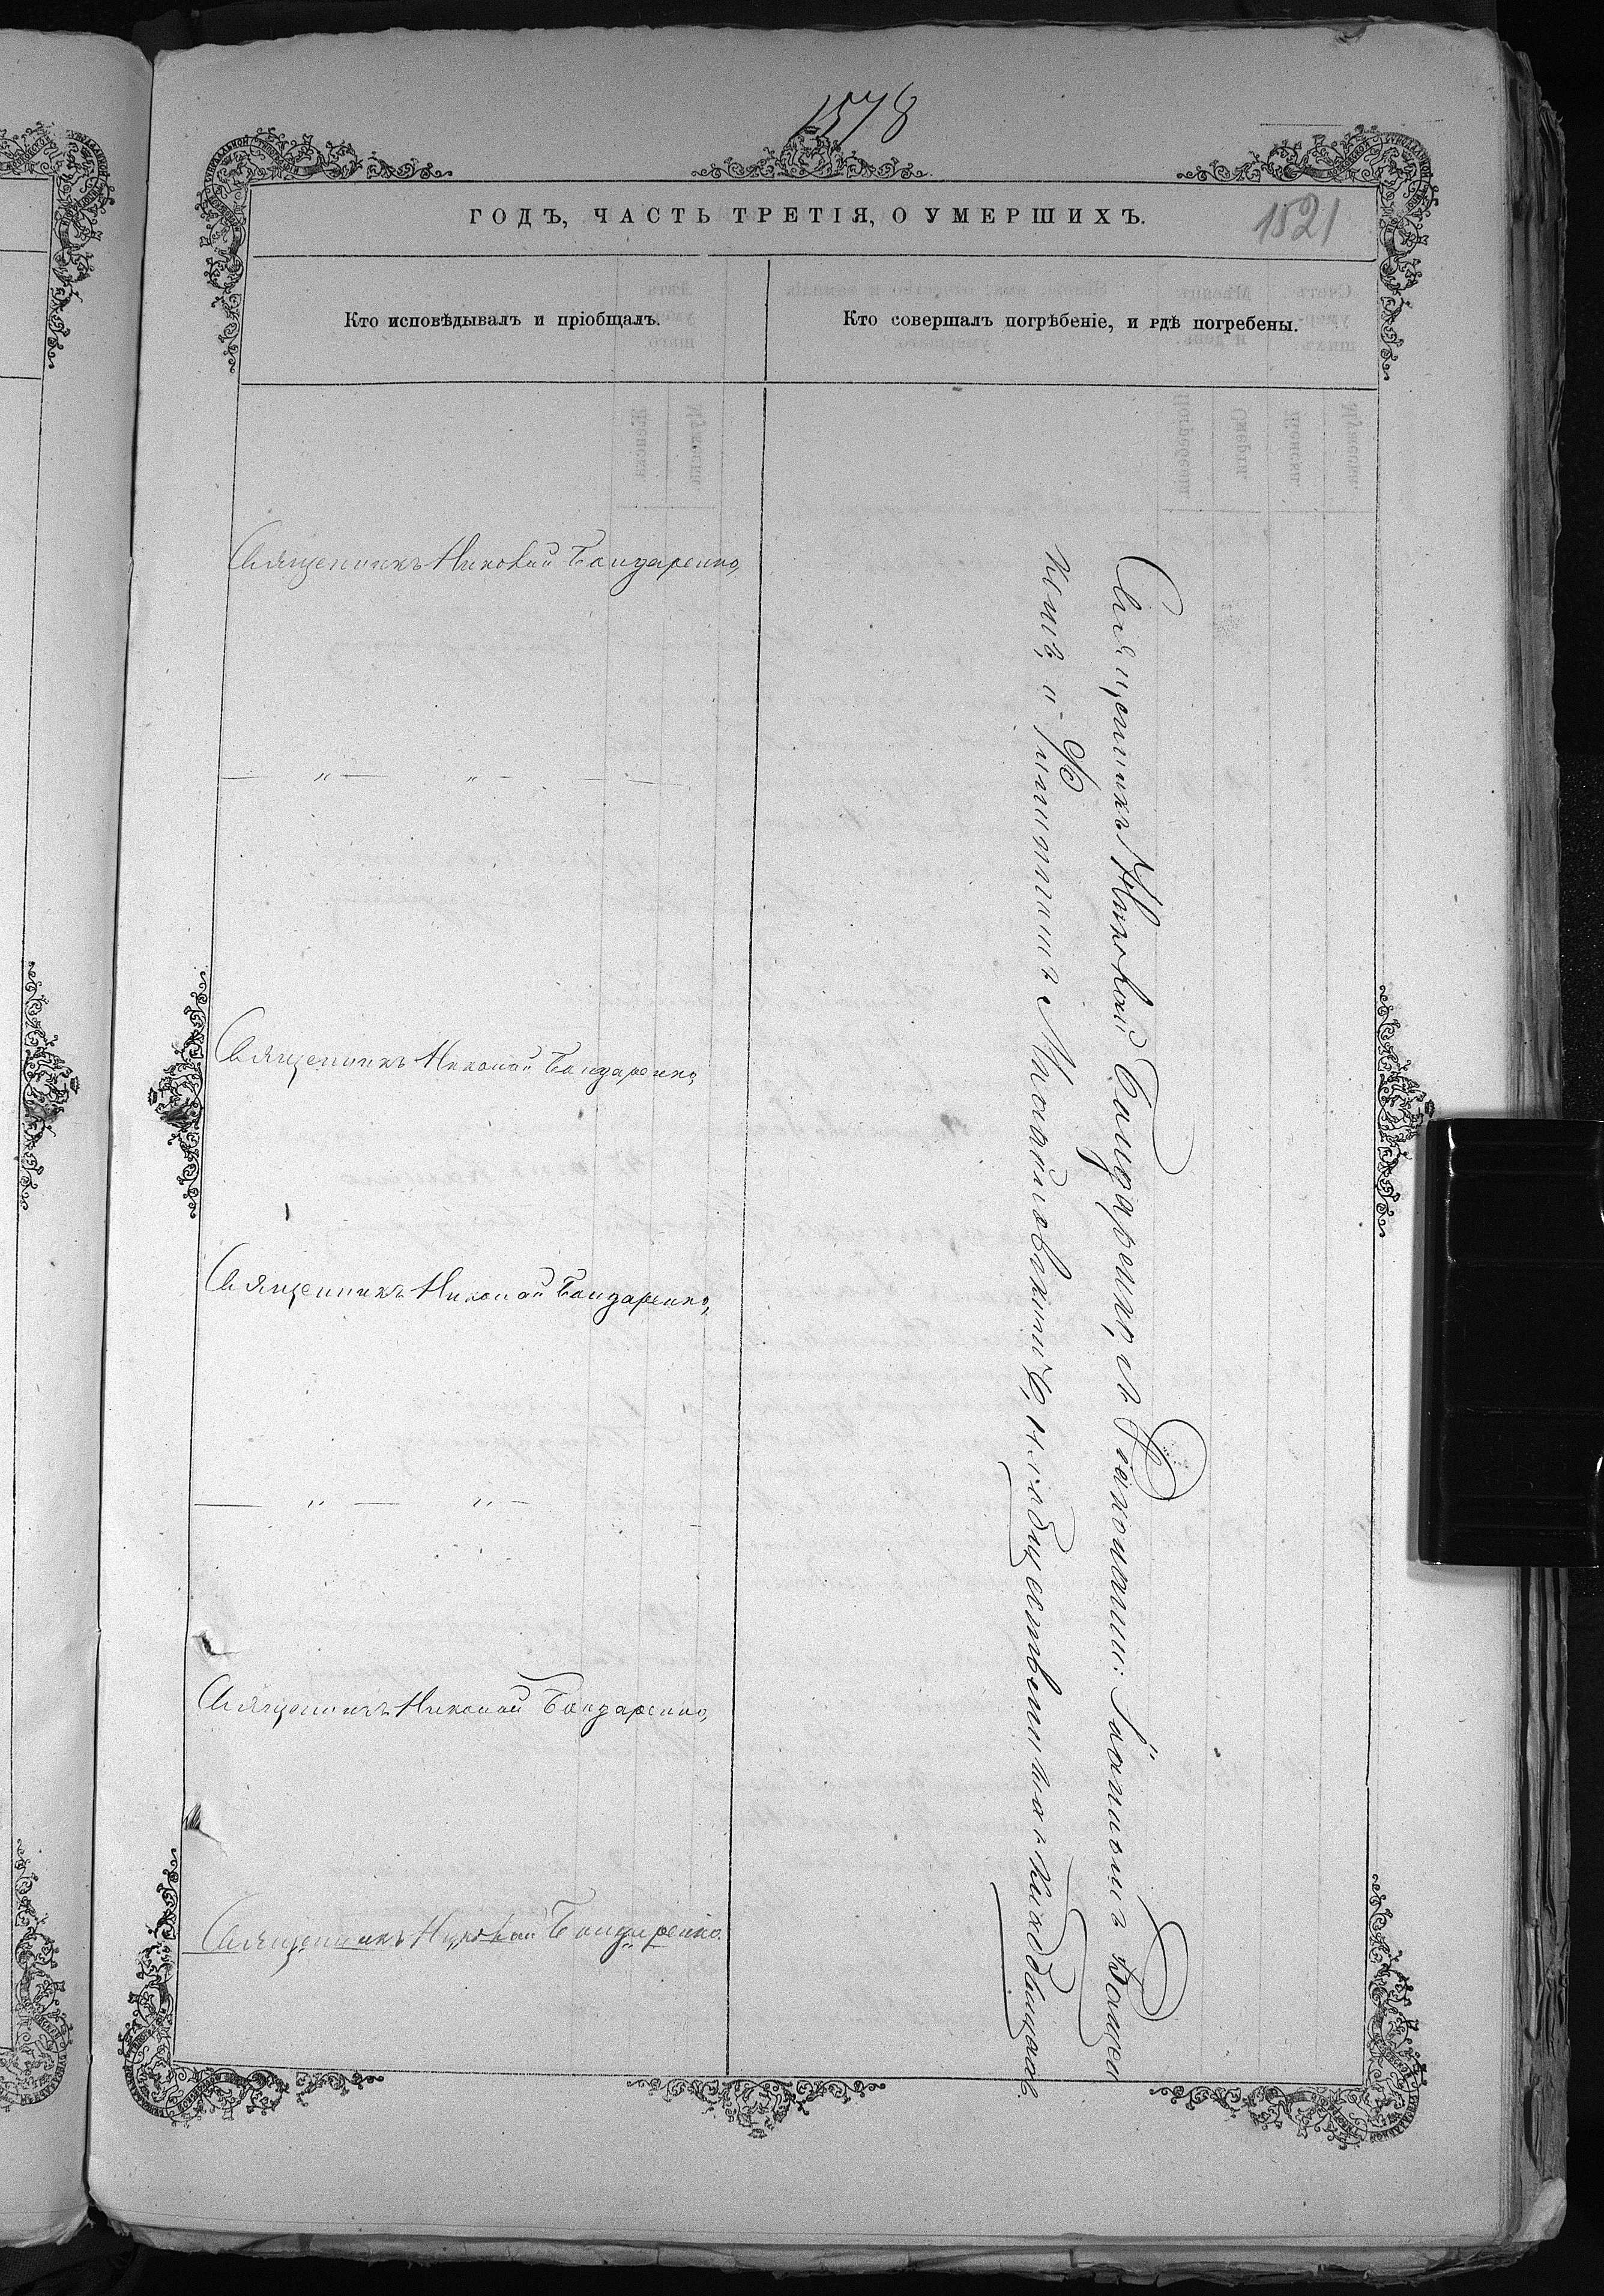 1578
ГОДЪ, ЧАСТЬ ТРЕТІЯ, О УМЕРШИХЪ.
1521
Кто исповѣдывалъ и пріобщалъ.
Кто совершалъ погрѣбеніе, и гдѣ погребены.
Священникъ Николай Бондаренко,
— „ — „ — —
Священникъ Николай Бондаренко,
Священникъ Николай Бондаренко,
— „ — „ —
Священникъ Николай Бондаренко,
Священникъ Николай Бондаренко.
Священникъ Николай Бондаренко, съ Діакономъ Іоанномъ
и на общественномъ кладбищѣ.